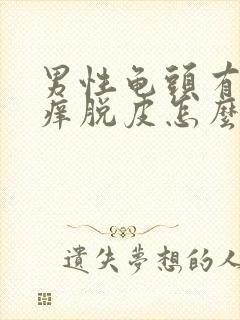 男性龟頭有
痒脱皮怎麼
遺失夢想的人